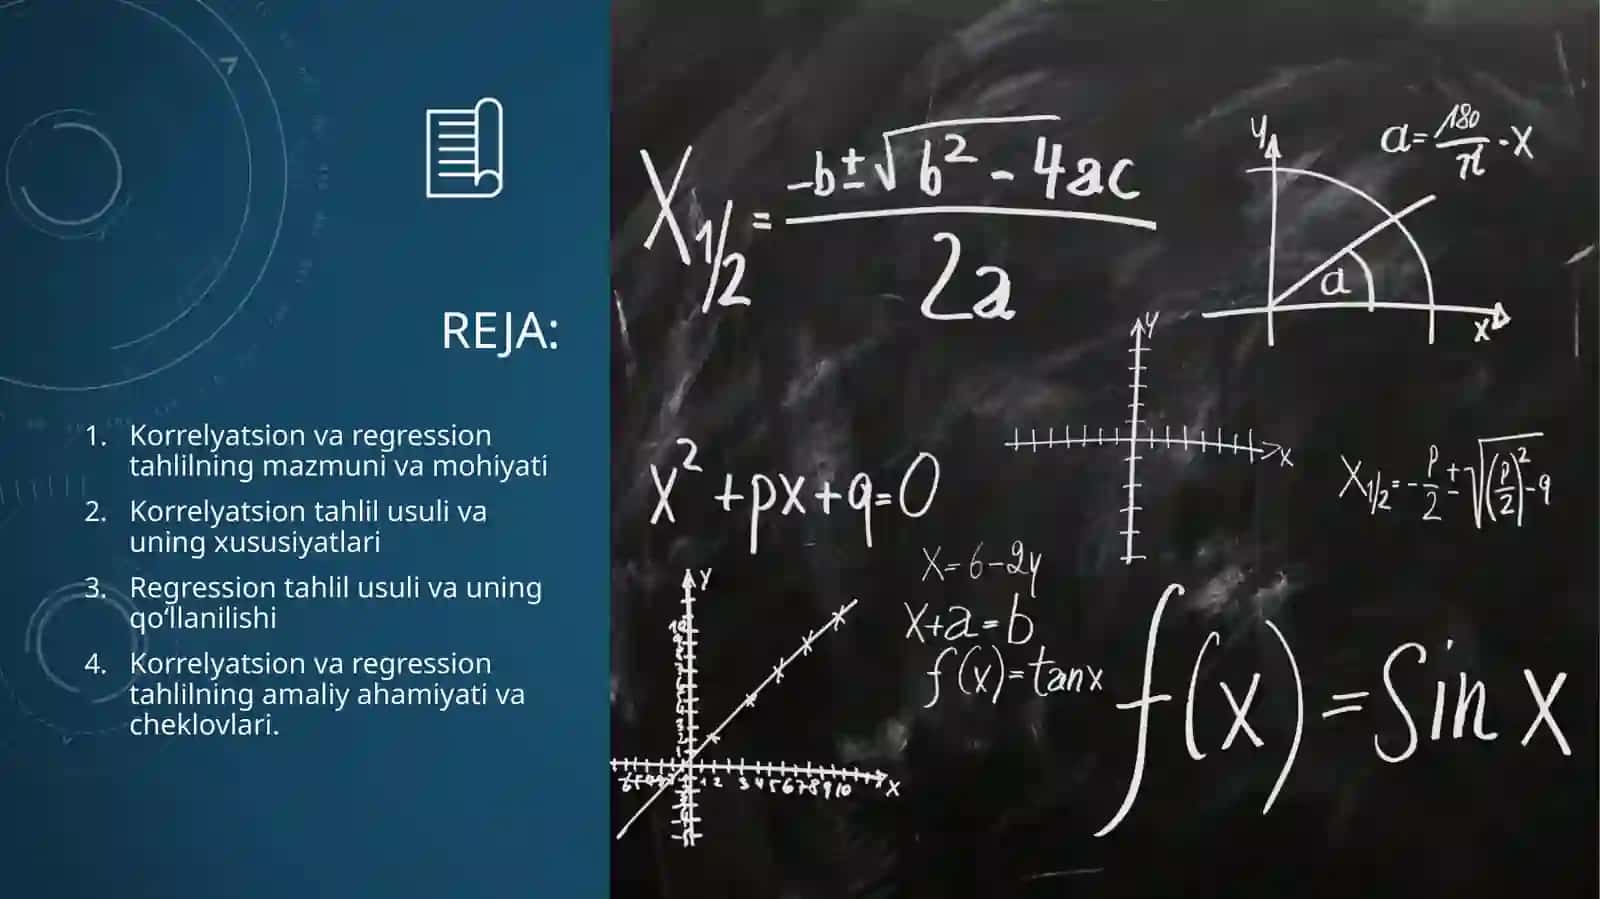 REJA:
1. Korrelyatsion va regression
tahlilning mazmuni va mohiyati
2. Korrelyatsion tahlil usuli va
uning xususiyatlari
3. Regression tahlil usuli va uning
qo‘llanilishi
4. Korrelyatsion va regression
tahlilning amaliy ahamiyati va
cheklovlari.
X1/2 = (-b±√(b² - 4ac)) / 2a
y
a = 180/π · X
a
x
y
x
x² + px + q = 0
X1/2 = -p/2 ± √((p/2)² - q)
x = 6 - 2y
x + a = b
f(x) = tanx
f(x) = Sin x
y
1 2 3 4 5 6 7 8 9 10
x